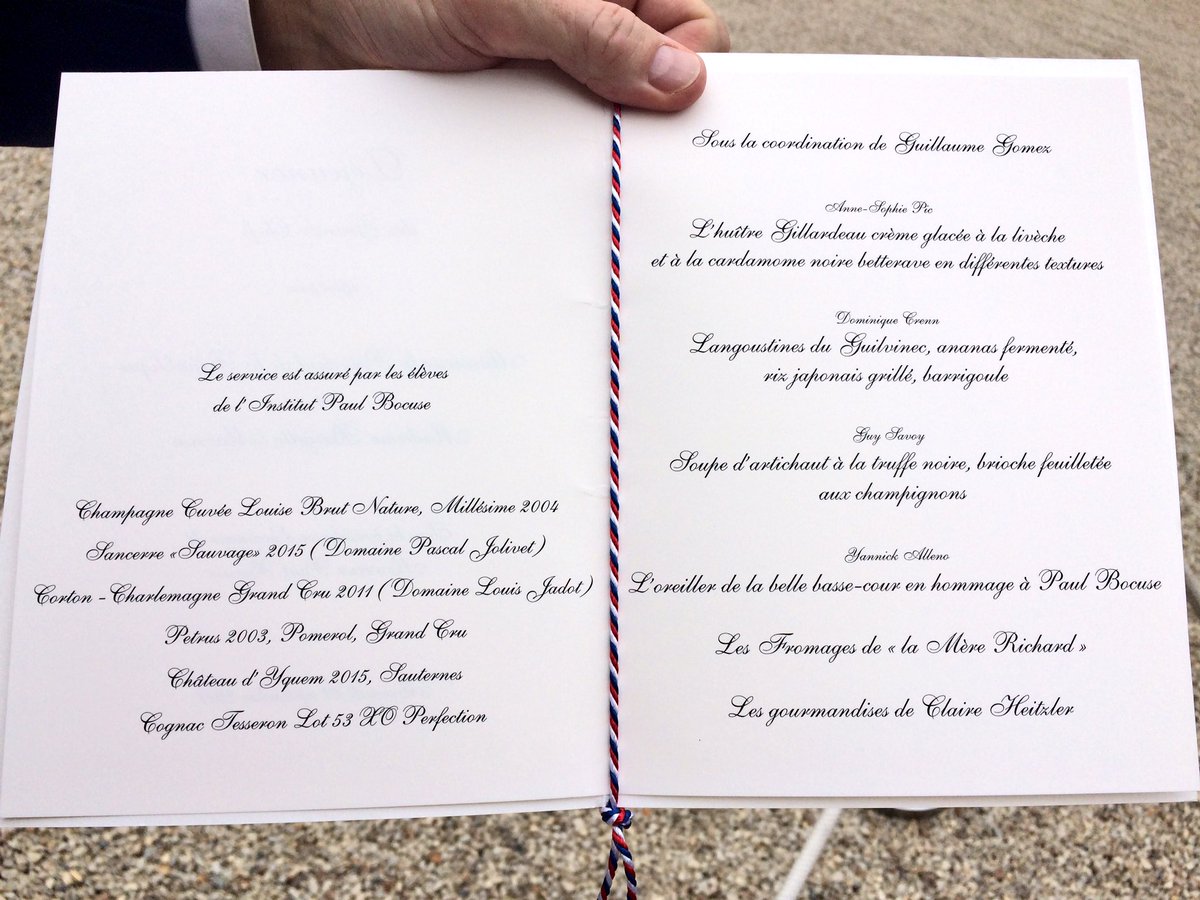 Le service est assuré par les élèves
de l'Institut Paul Bocuse
Champagne Cuvée Louise Brut Nature, Millésime 2004
Sancerre «Sauvage» 2015 (Domaine Pascal Jolivet)
Corton -Charlemagne Grand Cru 2011 (Domaine Louis Jadot)
Petrus 2003, Pomerol, Grand Cru
Château d'Yquem 2015, Sauternes
Cognac Tesseron Lot 53 XO Perfection
Sous la coordination de Guillaume Gomez
Anne-Sophie Pic
L'huître Gillardeau crème glacée à la livèche
et à la cardamome noire betterave en différentes textures
Dominique Crenn
Langoustines du Guilvinec, ananas fermenté,
riz japonais grillé, barrigoule
Guy Savoy
Soupe d'artichaut à la truffe noire, brioche feuilletée
aux champignons
Yannick Alleno
L'oreiller de la belle basse-cour en hommage à Paul Bocuse
Les Fromages de « la Mère Richard »
Les gourmandises de Claire Heitzler